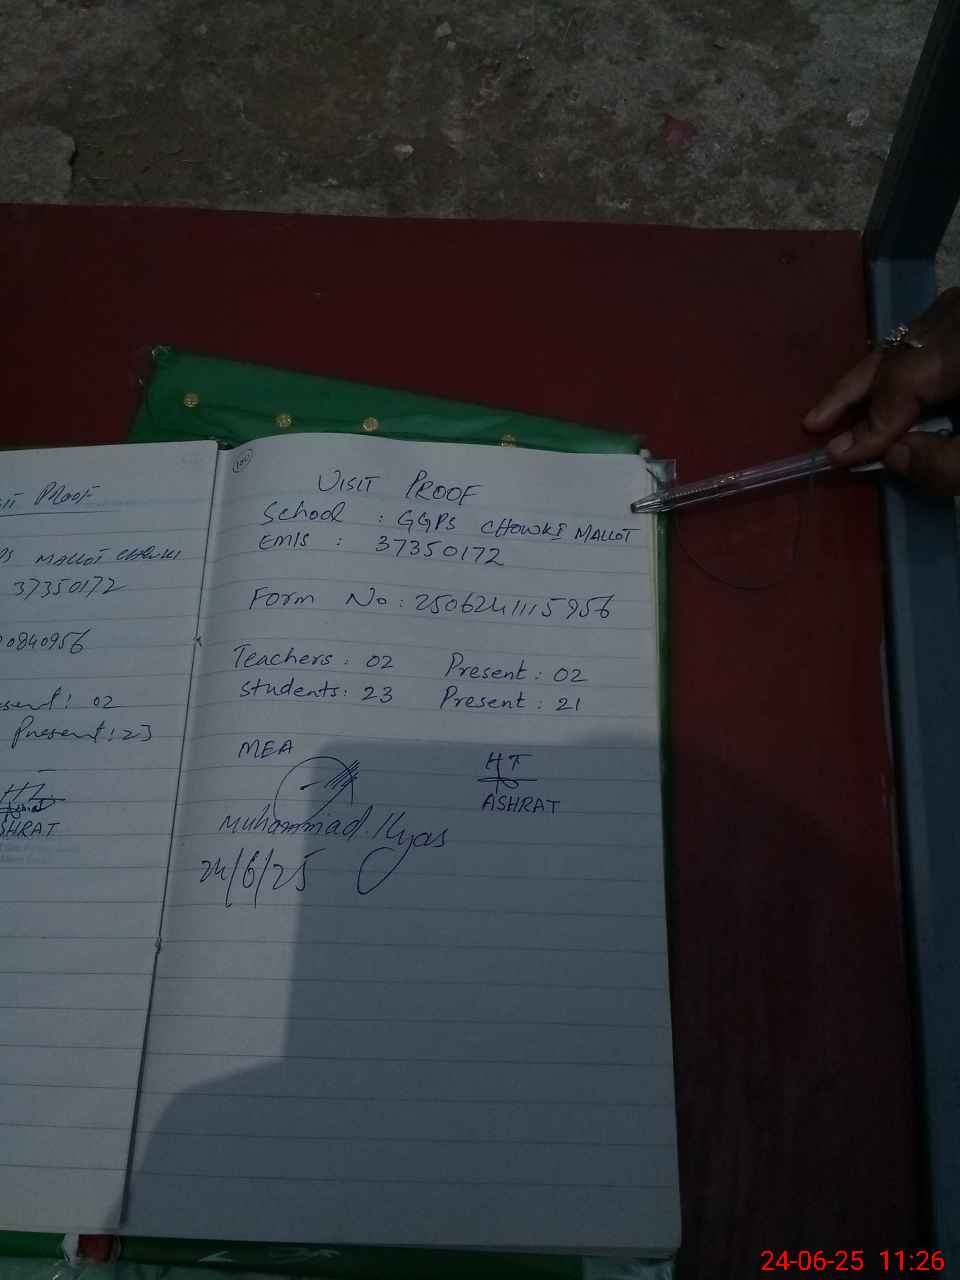 PROOF
MALLOT CHOWKI
37350172
0840956
02
Present: 23
100
VISIT PROOF
School : GGPS CHOWKI MALLOT
EMIS : 37350172
Form No: 2506241115956
Teachers: 02 Present: 02
Students: 23 Present: 21
MEA HT
ASHRAT
Muhammad Ilyas
24/6/25
24-06-25 11:26